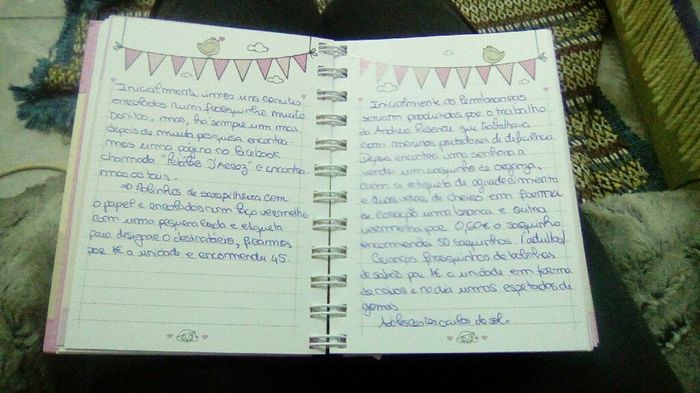 Inicialmente vimos uns convites
enrolados num frasquinho muito
bonitos, mas, há sempre um mas,
depois de muita pesquisa encontra-
mos uma página no facebook
chamada "
mos os tais.
Rolinhos de serapilheira com
o papel e enrolados num laço vermelho
com uma pequena corda e etiqueta
para designar o destinatário, ficamos
por 1€ a unidade e encomendei 45.
Inicialmente as lembranças
seriam produzidas por o trabalho
da que trabalhava
com meninos portadores de deficiência.
Depois encontrei uma senhora a
vender um saquinho de organza,
com a etiqueta de agradecimento
e duas velas de cheiro em forma
de coração uma branca e outra
vermelha por 0,60€ o saquinho
encomendei 50 saquinhos. (adultos)
Crianças frasquinhos de bolinhas
de sabão por 1€ a unidade em forma
de e no dia umas espetadas de
gomas
Adolescentes oculos de sol.